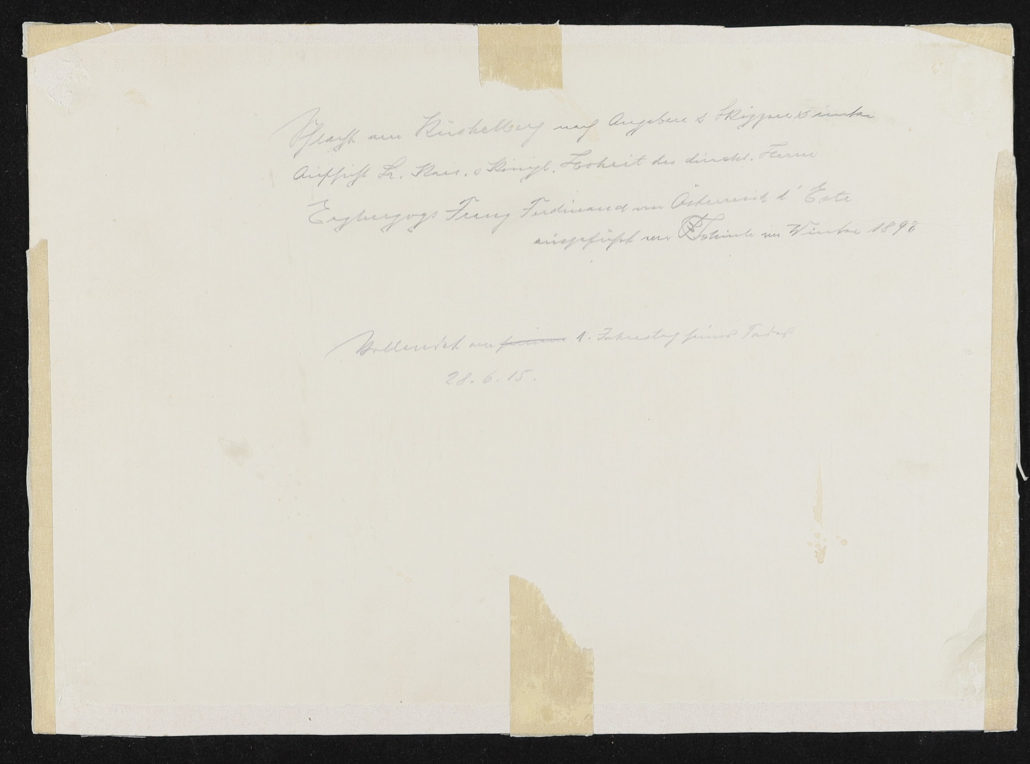 Schlacht am Küchelberg nach Angaben & Skizzen unter
Aufsicht Sr. Kais. & Königl. Hoheit des durchl. Herrn
Erzherzogs Franz Ferdinand von Österreich d'Este
ausgeführt von im Winter 189
Vollendet am 1. Jahrestag seines Todes
28. 6. 15.